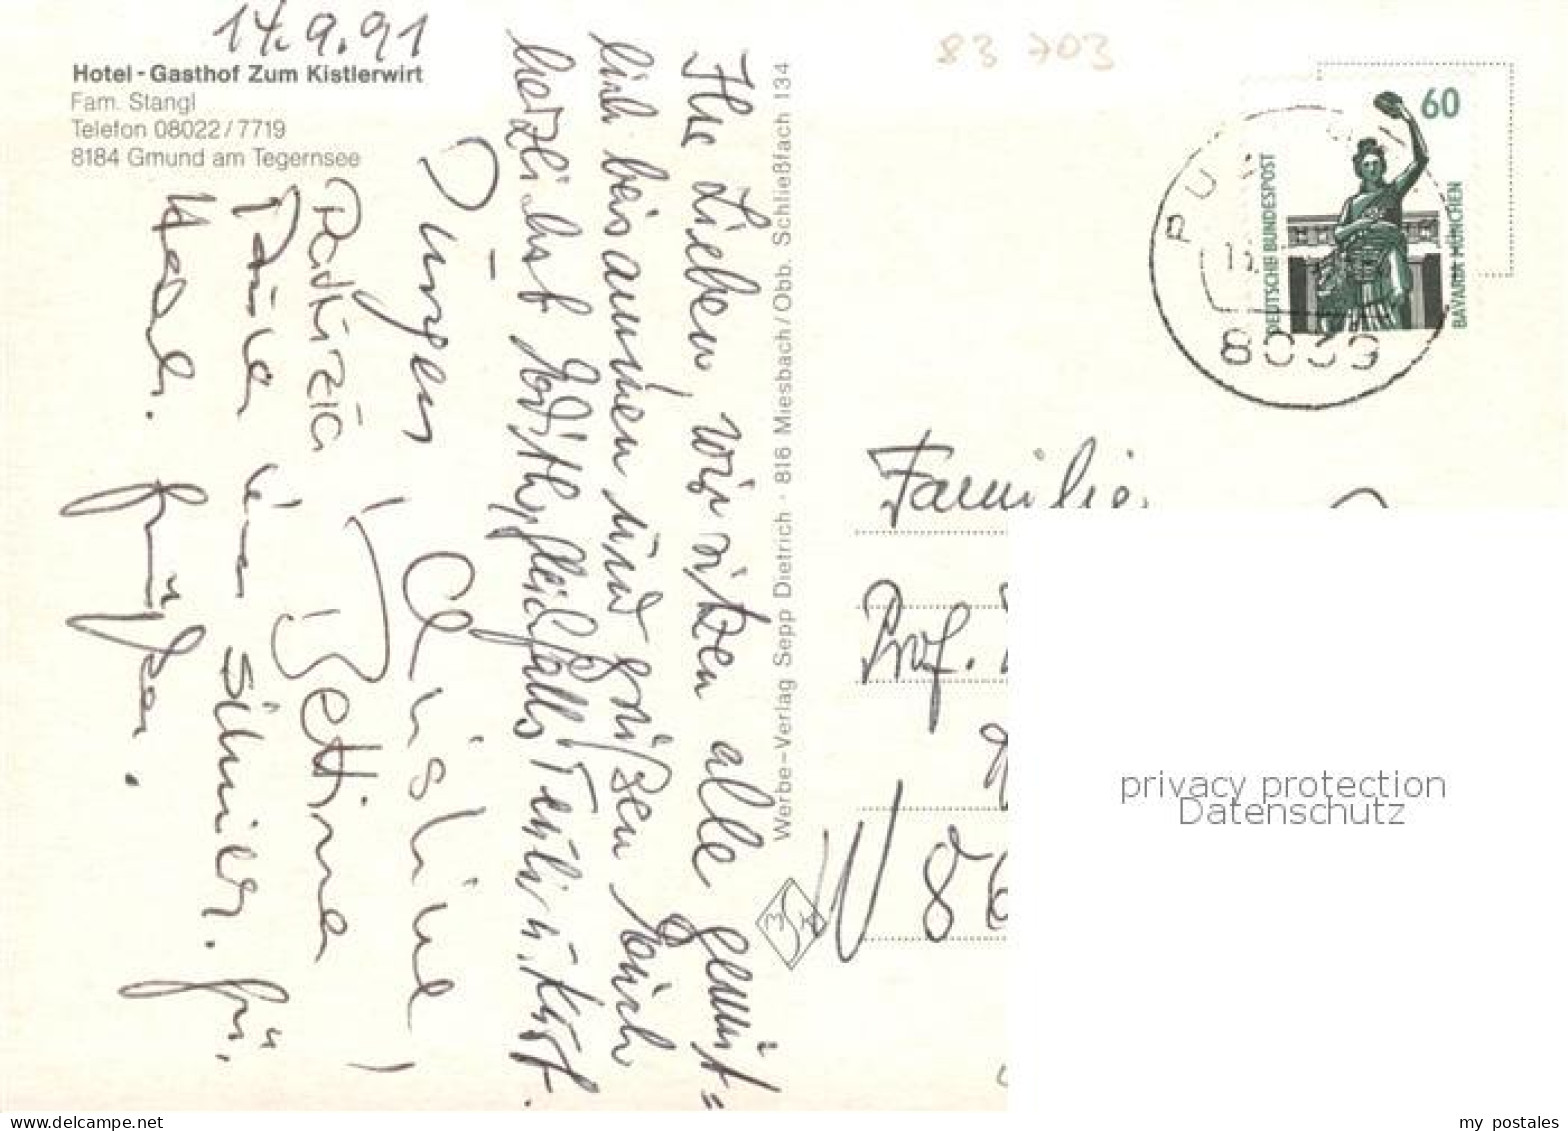 14.9.91
Hotel - Gasthof Zum Kistlerwirt
Fam. Stangl
Telefon 08022 / 7719
8184 Gmund am Tegernsee
Ihr Lieben, wir sitzen alle gemüt=
lich beisammen und grüßen Euch
herzlichst Edith, gleichfalls u. Kurt.
Jürgen Christine,
Patrizia, Bettina
für
grüßen.
Werbe-Verlag Sepp Dietrich · 816 Miesbach/Obb. Schließfach 134
83 703
60
DEUTSCHE BUNDESPOST
BAVARIA MÜNCHEN
PU
8039
Familie
Prof.
W 86
privacy protection
Datenschutz
my postales
www.delcampe.net